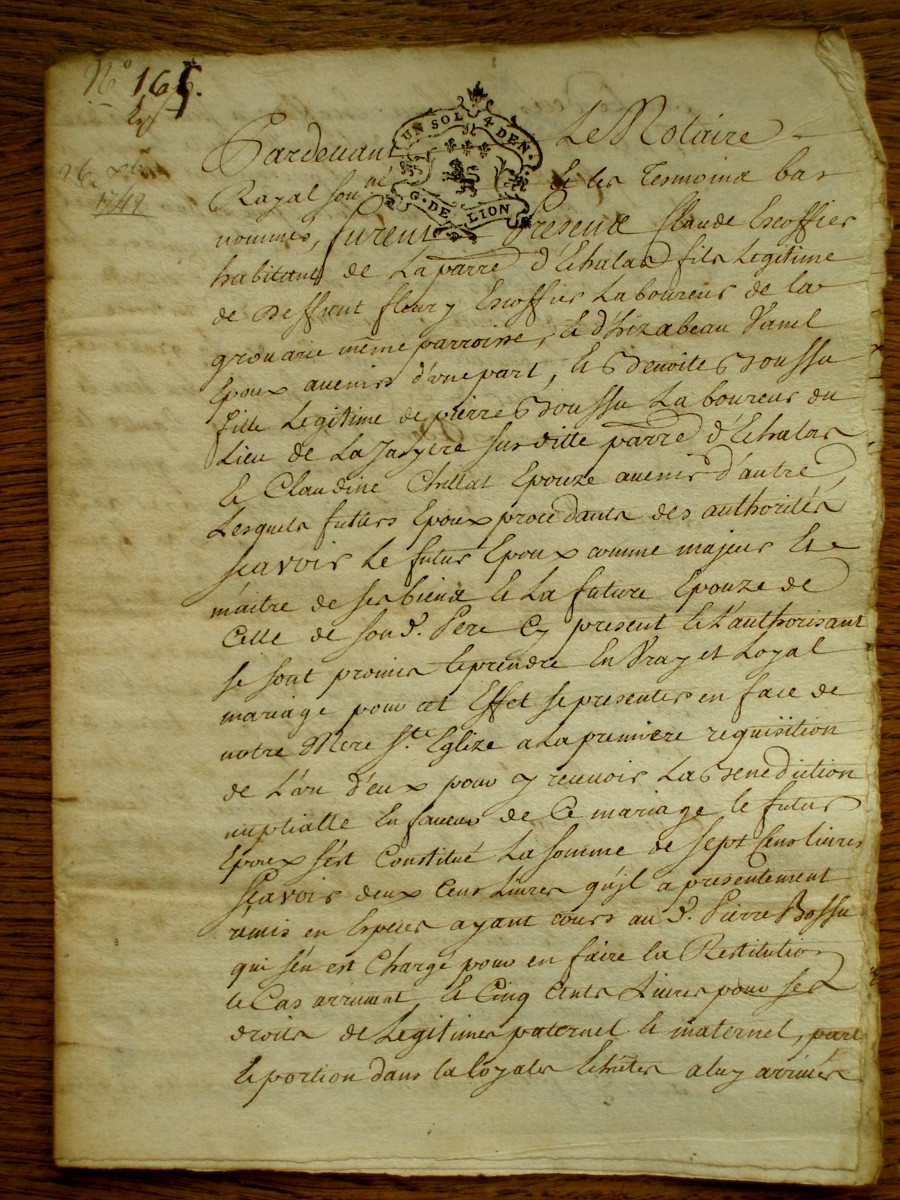 N.° 165.
1749
UN SOL 4 DEN.
G. DE LION
Pardeuant Le Notaire
Royal sou.né Et les Tesmoins bas
nommés, furent Presens Claude Escoffier
habitant de La parre d'Echalas fils Legitime
de deffunt fleury Escoffier Laboureur de la
grouarie même parroisse, Et d'Izabeau
Epoux auenir d'une part, Et Benoite Boussu
fille Legitime de pierre Boussu Laboureur du
Lieu de La Jasyere sus ditte parre d'Echalas
Et Claudine Chillat Epouze auenir d'autre,
Lesquels futurs Epoux procedants des authorités
sçavoir Le futur Epoux comme majeur Et
maitre de ses biens Et La future Epouze de
Celle de son d. Pere Cy present Et L'authorisant
se sont promis se prendre En Vray et Loyal
mariage pour cet Effet se presenter en face de
notre Mere S.te Eglize a La premiere requisition
de L'un d'eux pour y receuoir La Benediction
nuptialle En faueur de Ce mariage le futur
Epoux s'est Constitué La somme de sept Cens livres
sçavoir deux Cens Livres qu'il a presentement
remis en Especes ayant cours au d. Pierre Bossu
qui s'en est Chargé pour en faire la Restitution
le Cas arriuant, Et Cinq Cents Livres pour ses
droits de Legitimes paternel Et maternel, part
Et portion dans la loyales Echutes a luy arriuées